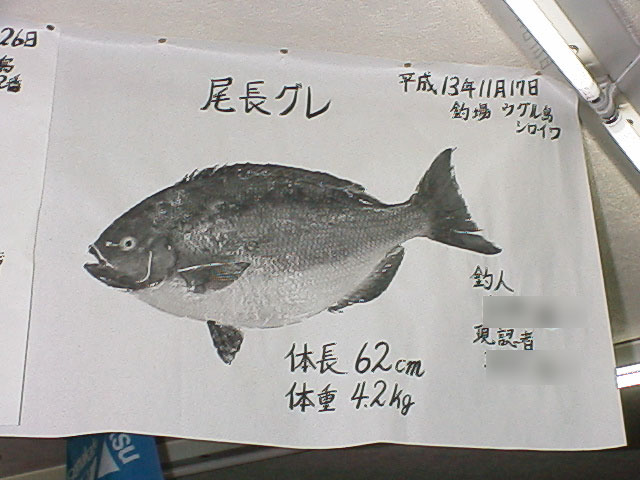 26日
尾長グレ
平成13年11月17日
釣場 ウグル島
シロイワ
釣人
現認者
体長 62cm
体重 4.2kg